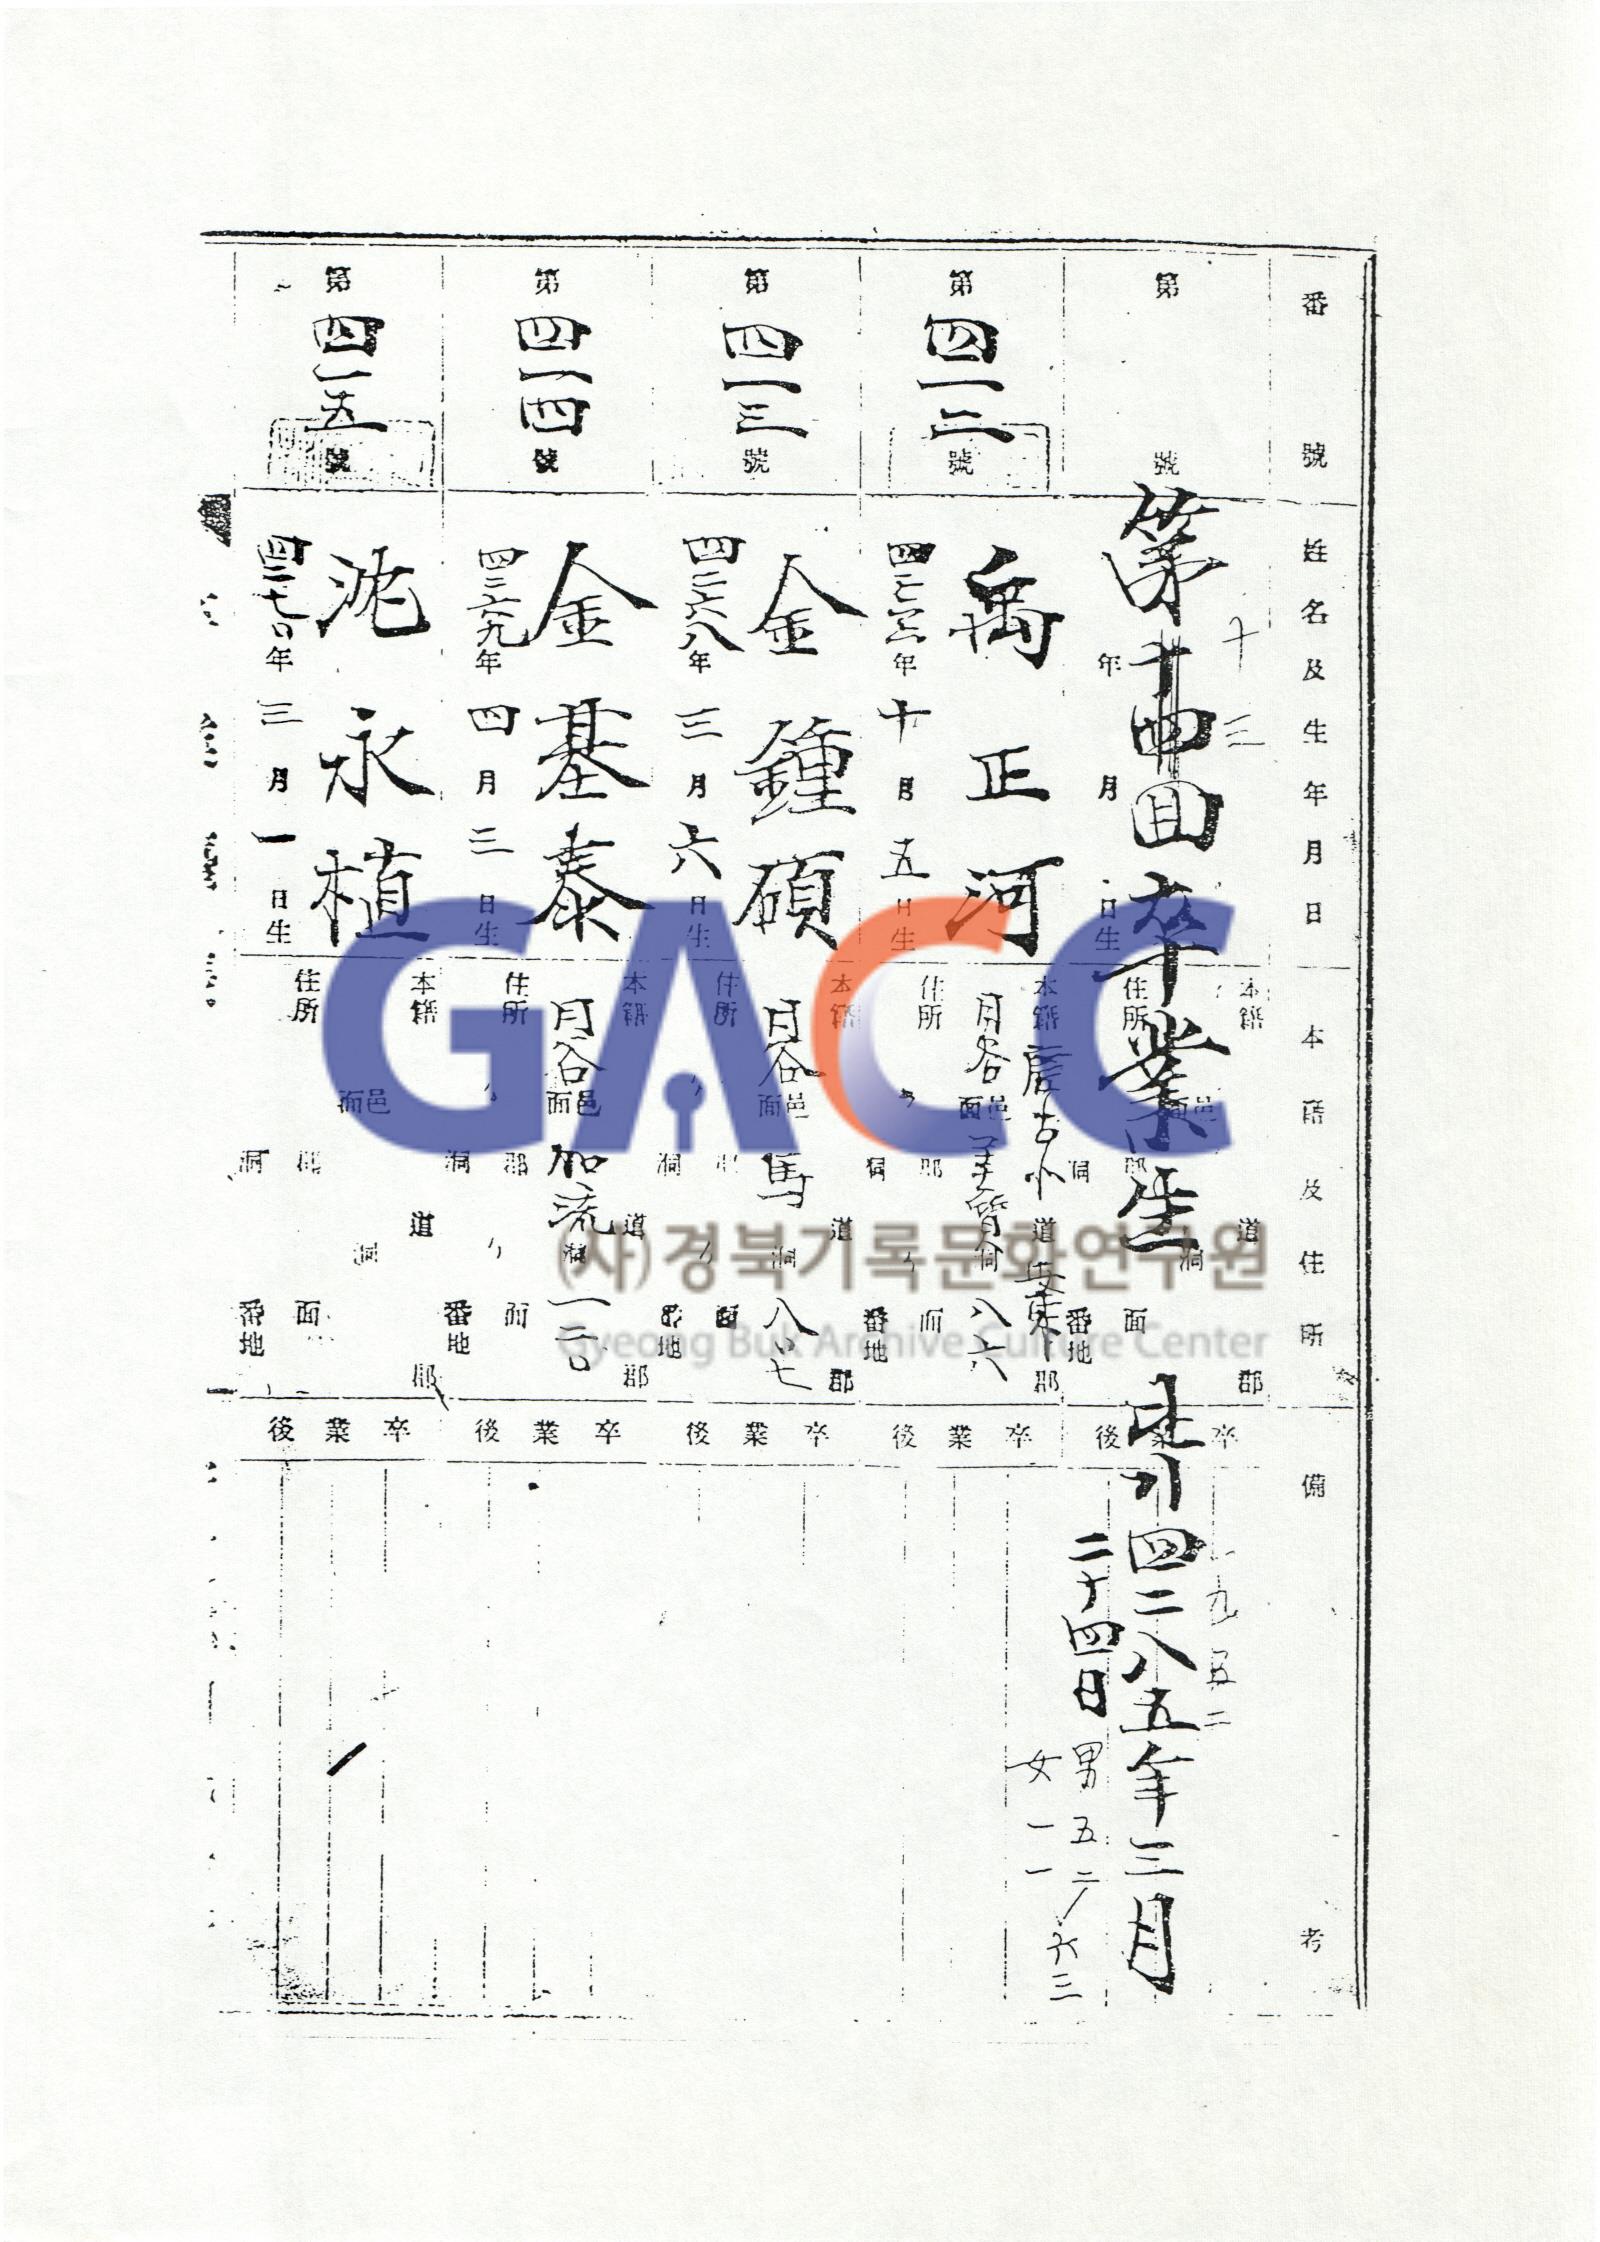 番號
姓名及生年月日
本籍及住所
備考
第 號
年 月 日生
本籍 道 郡
住所 郡 面
邑面 洞
洞 番地
卒業後
十三
第十四回卒業生
檀行四二八五年三月
二十四日
一九五二
男五二
女一一
六三
第四一二號
禹正河
年十月五日生
本籍 慶古北道安東郡
月谷邑面 洞八六
住所 郡 面 洞 番地
卒業後
第四一三號
金鍾碩
四二六八年三月六日生
本籍 道 郡
月谷邑面 馬洞八七
住所
卒業後
第四一四號
金基泰
四二六九年四月三日生
本籍 道 郡
月谷邑面 加流洞一二〇
住所 郡 面 洞 番地
卒業後
第四一五號
沈永植
四二七〇年三月一日生
本籍 道 郡
邑面 洞
住所 郡 面 洞 番地
卒業後
GACC
(사)경북기록문화연구원
Gyeong Buk Archive Culture Center